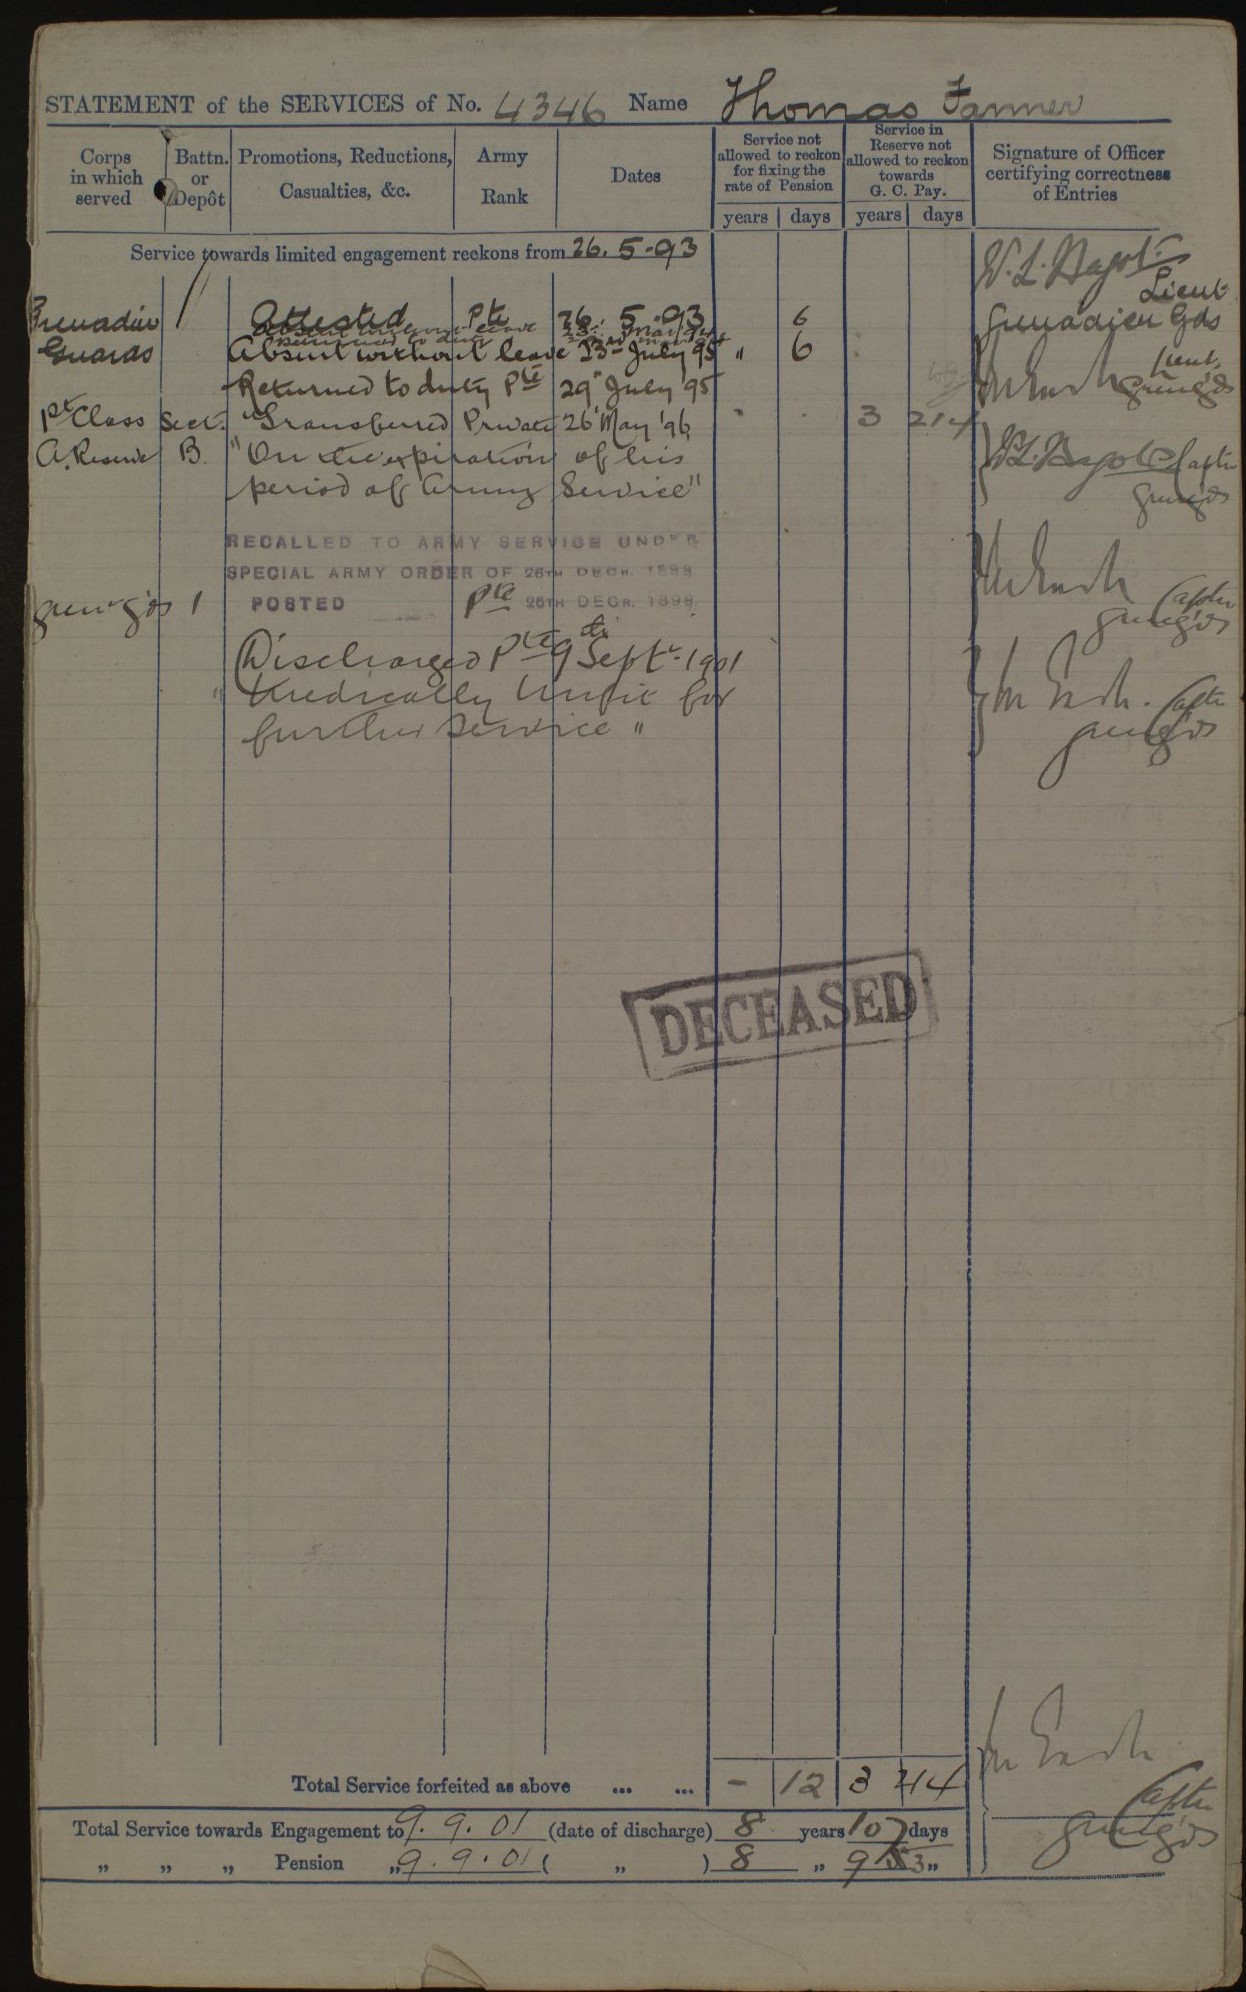 STATEMENT of the SERVICES of No. 4346 Name Thomas Fanner
Corps in which served
Battn. or Depôt
Promotions, Reductions, Casualties, &c.
Army Rank
Dates
Service not allowed to reckon for fixing the rate of Pension
Service in Reserve not allowed to reckon towards G. C. Pay.
Signature of Officer certifying correctness of Entries
years days years days
Service towards limited engagement reckons from 26.5-93
W. L. Bagot. Lieut
Grenadier 1 Attested Pte 26. 5-93 6 Grenadier Gds
Absent without leave
returned to duty
Guards Absent without leave 23rd July 95 " 6 Lieut.
Returned to duty Pte 29th July 95 Gren. Gds
1st Class Sect. "Transferred Private 26 May '96 3 214
A. Reserve B. "On the expiration of his W.L. Bagot Capttn
period of Army Service" Gren Gds
RECALLED TO ARMY SERVICE UNDER
SPECIAL ARMY ORDER OF 26TH DECR. 1898
Gren Gds 1 POSTED Pte 26TH DECR. 1898 Captn
Gren Gds
Discharged Pte 9th Sept. 1901
"Medically Unfit for Captn
further Service" Gren Gds
DECEASED
Total Service forfeited as above ... ... - 12 3 214
Captn
Total Service towards Engagement to 9. 9. 01 (date of discharge) 8 years 107 days Gren Gds
„ „ „ Pension „ 9. 9. 01 ( „ ) 8 „ 95 „